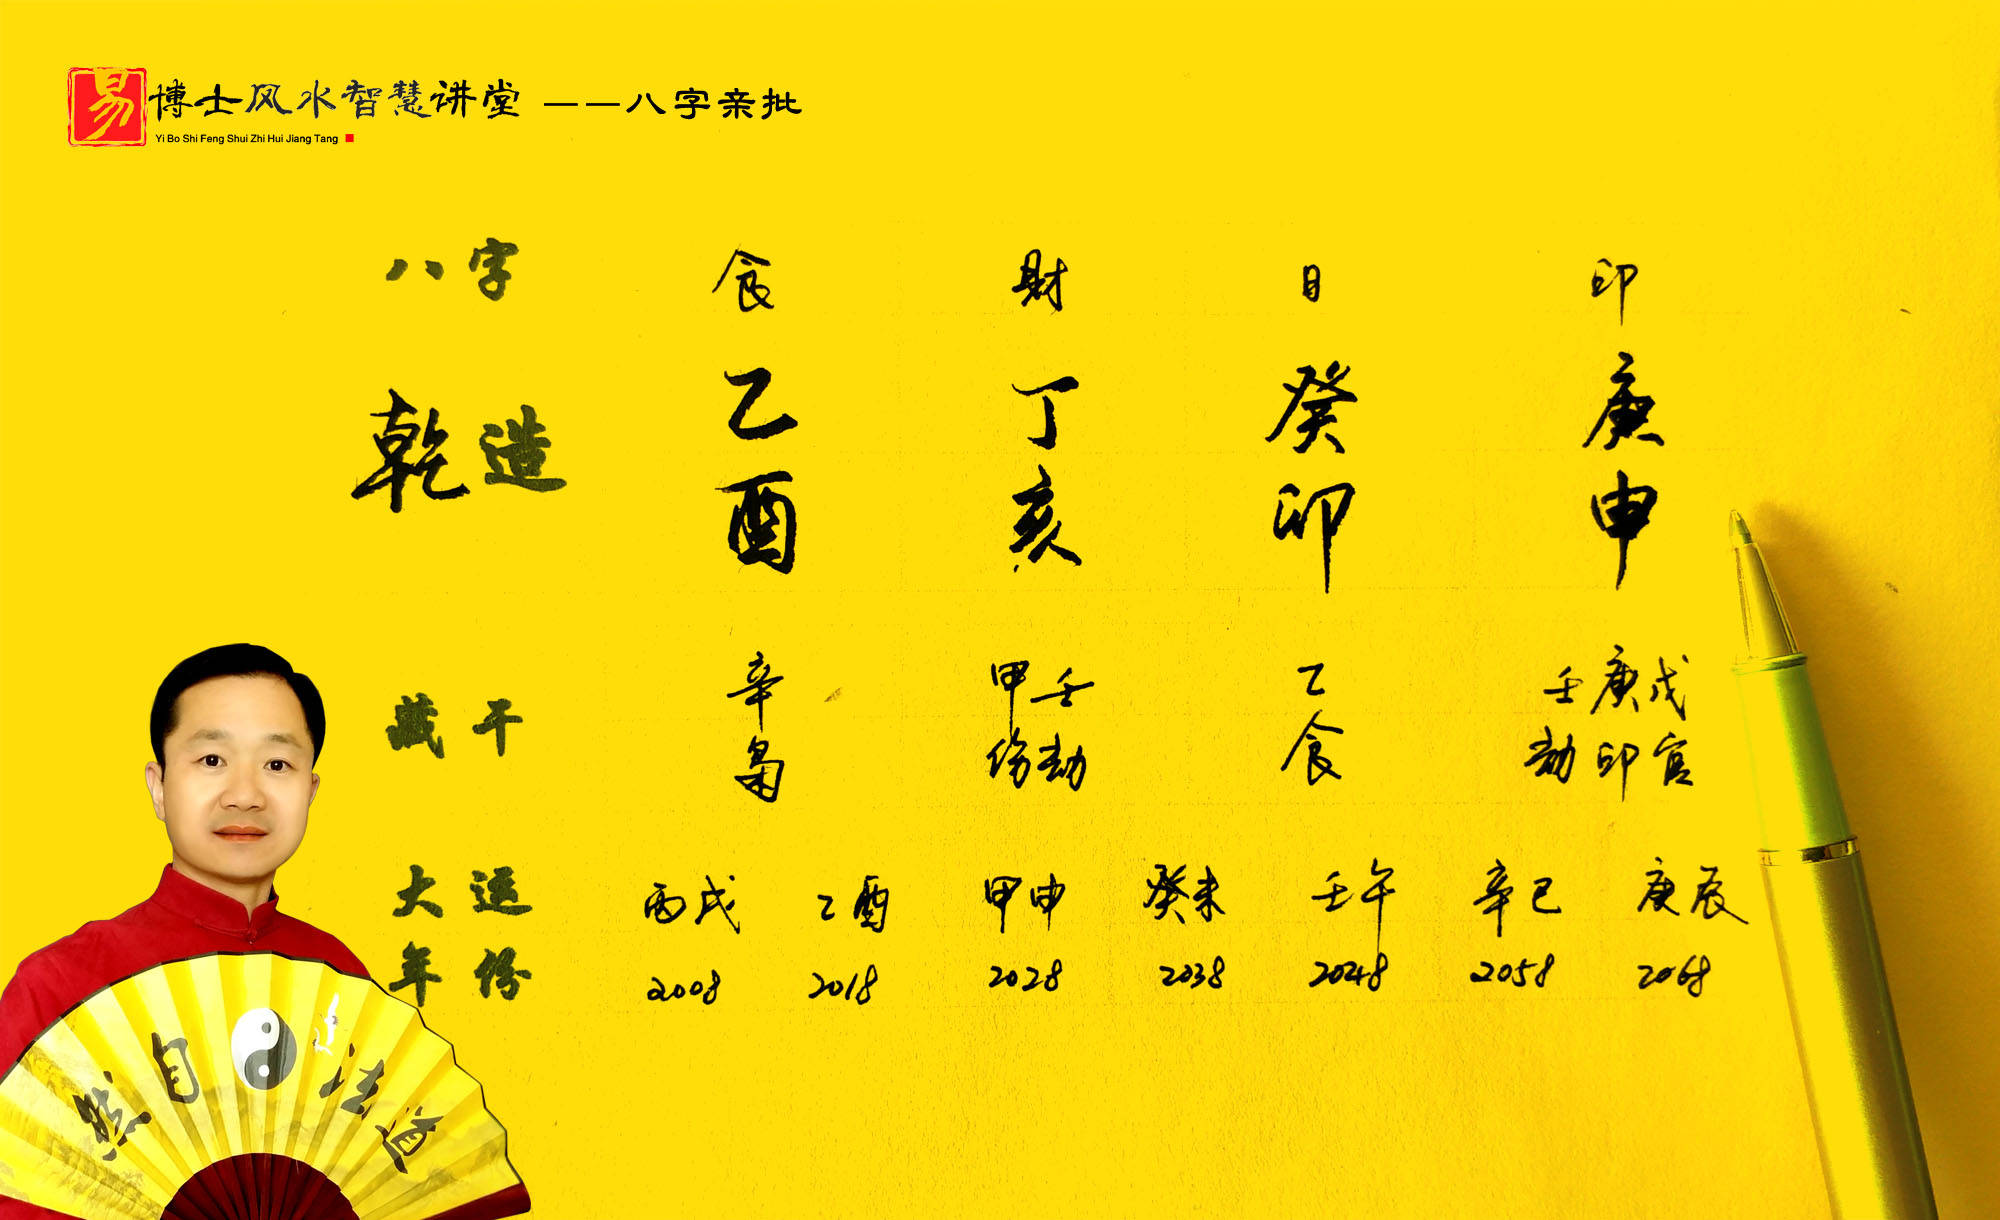 易博士风水智慧讲堂 ——八字亲批
Yi Bo Shi Feng Shui Zhi Hui Jiang Tang
八字 食 财 日 印
乾造 乙 丁 癸 庚
酉 亥 卯 申
藏干 辛 甲壬 乙 壬庚戊
枭 伤劫 食 劫印官
大运 丙戌 乙酉 甲申 癸未 壬午 辛巳 庚辰
年份 2008 2018 2028 2038 2048 2058 2068
道法自然